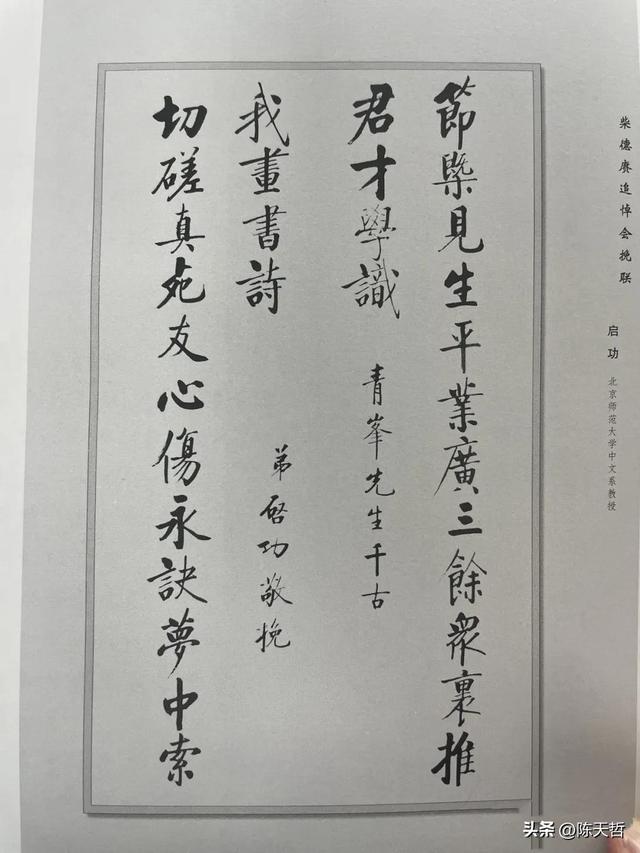 柴德赓追悼会挽联
启功 北京师范大学中文系教授
節槩見生平業廣三餘衆裏推
君才學識
青峯先生千古
切磋真死友心傷永訣夢中索
我畫書詩
弟啓功敬挽
头条 @陈天哲